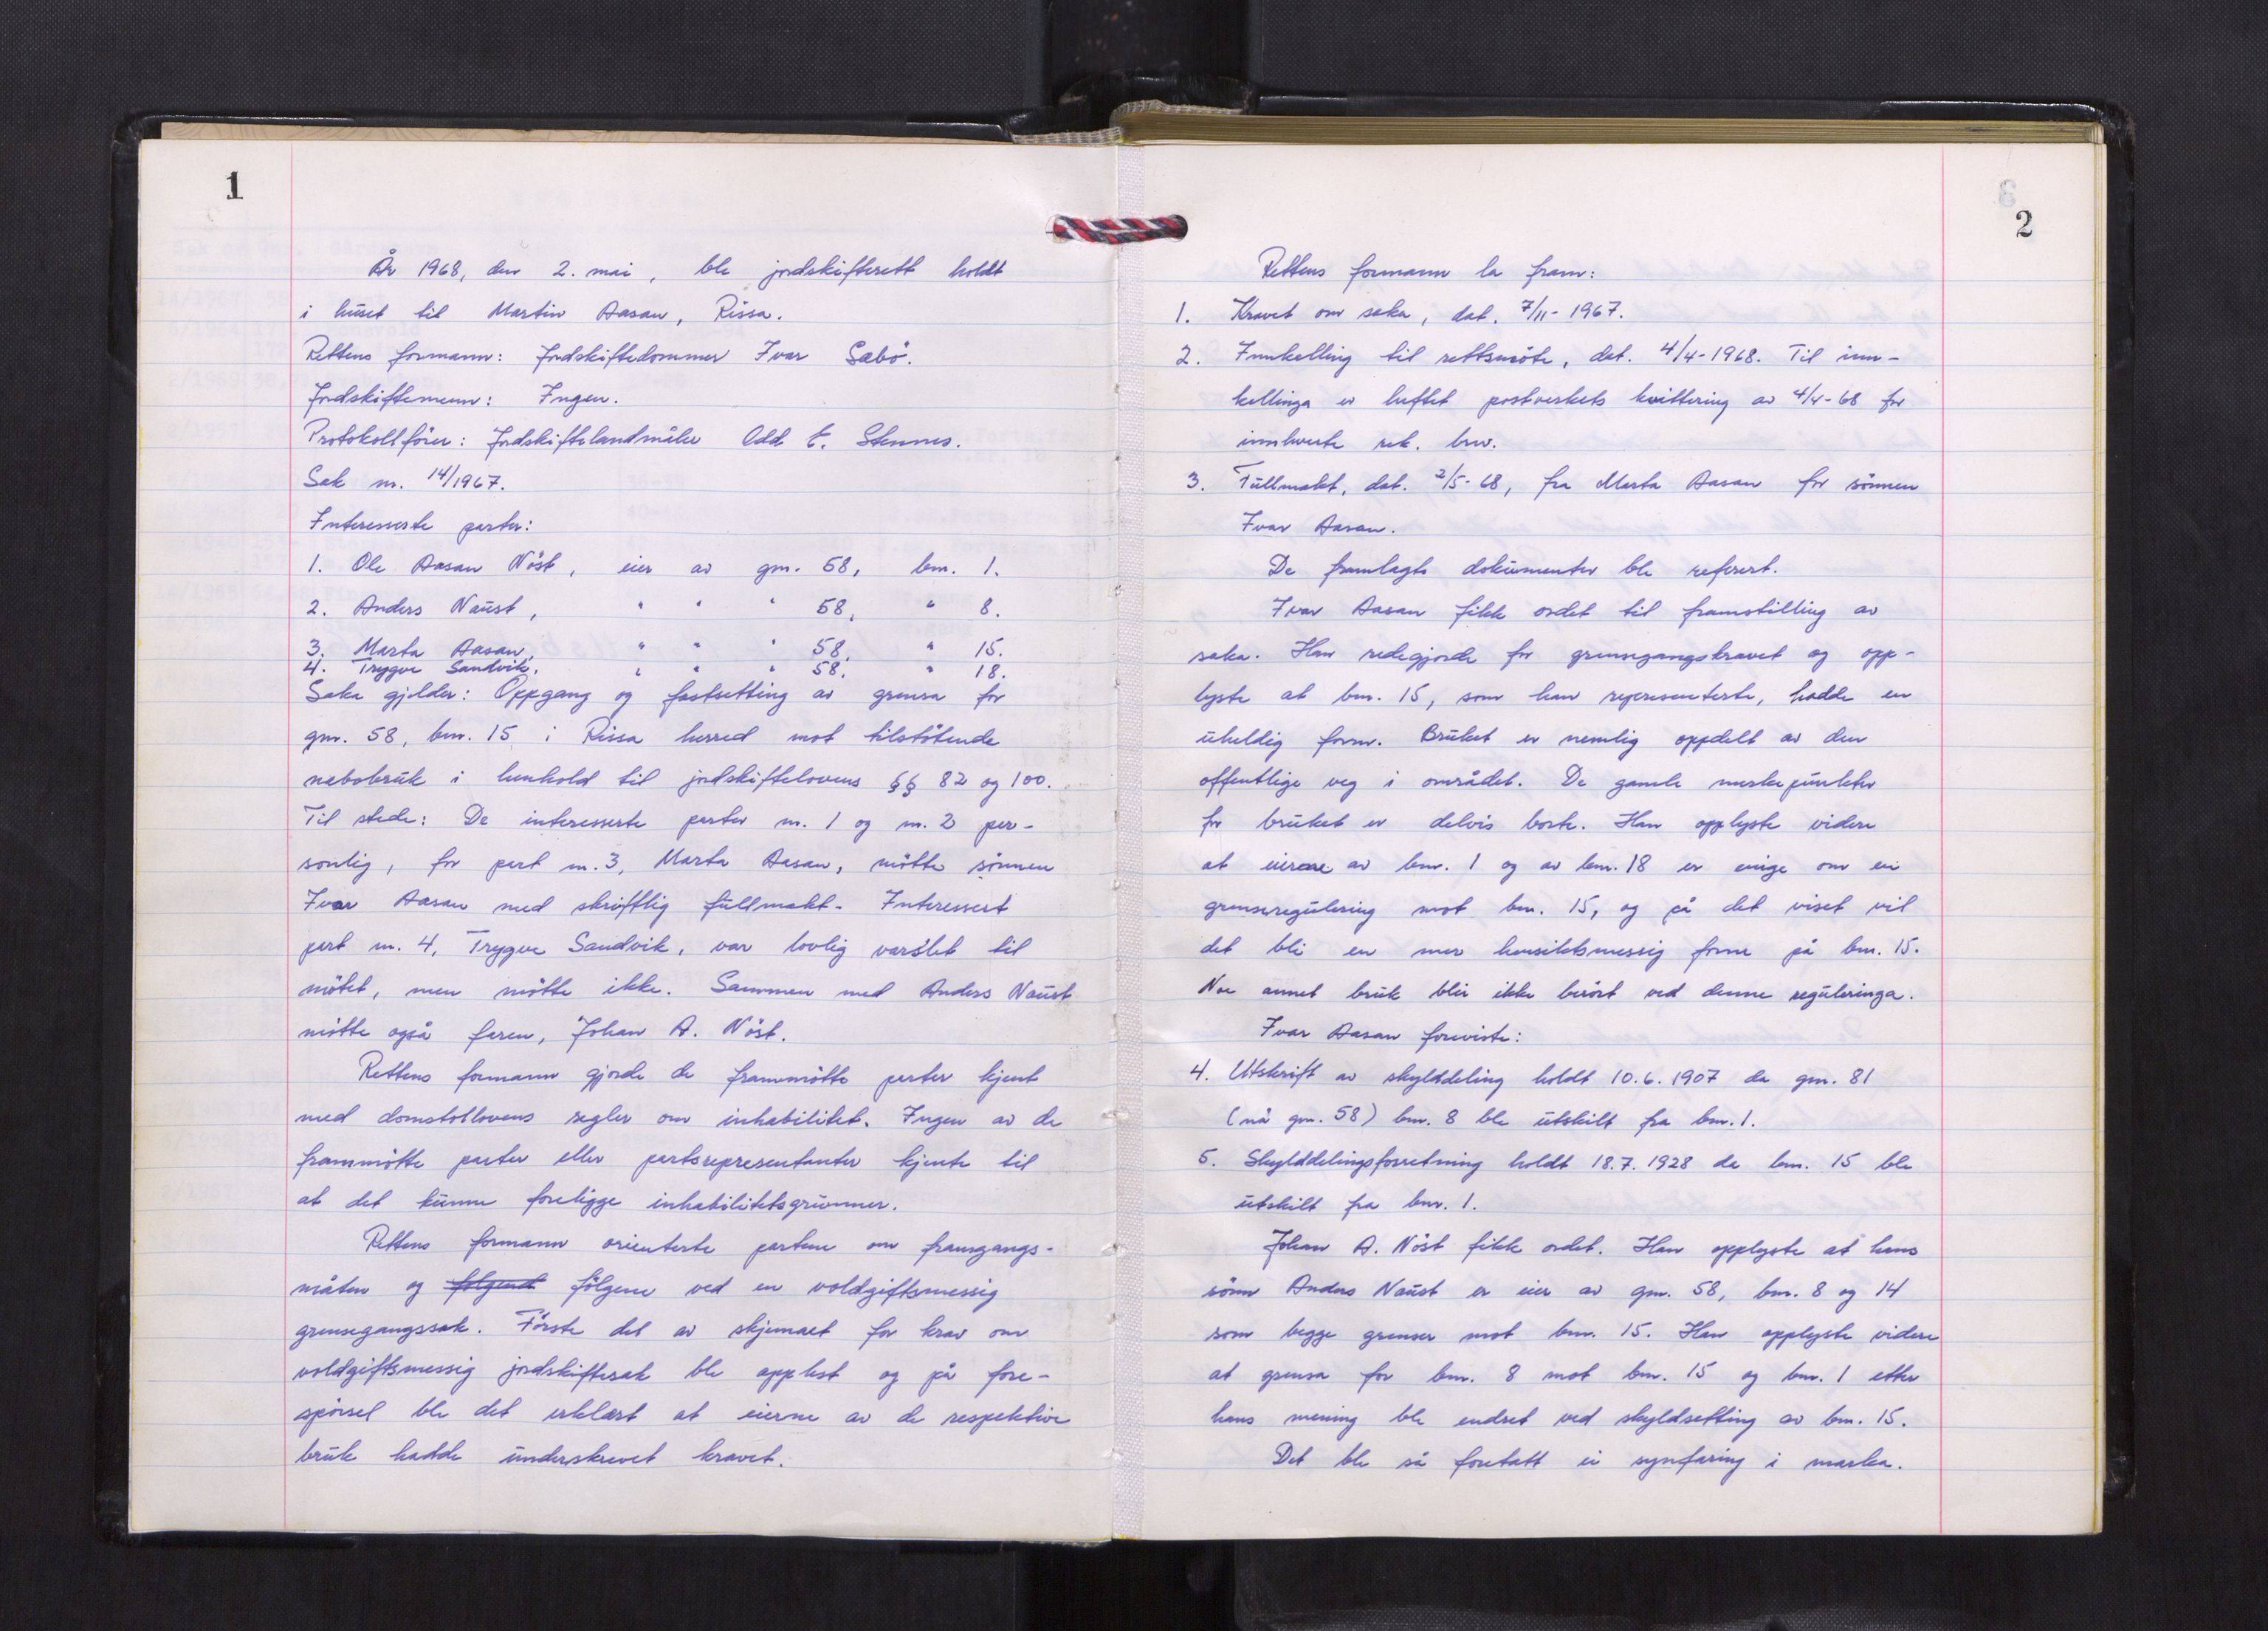 1
År 1968, den 2. mai, ble jordskifterett holdt
i huset til Martin Aasan, Rissa.
Rettens formann: Jordskiftedommer Ivar Sæbö.
Jordskiftemenn: Ingen.
Protokollfører: Jordskiftelandmåler Odd E. Stennes.
Sak nr. 14/1967.
Interesserte parter:
1. Ole Aasan Nöst, eier av gnr. 58, bnr. 1.
2. Anders Naust, " " " 58, " 8.
3. Marta Aasan, " " " 58, " 15.
4. Trygve Sandvik, " " " 58, " 18.
Saka gjelder: Oppgang og fastsetting av grensa for
gnr. 58, bnr. 15 i Rissa herred mot tilstötende
nabobruk i henhold til jordskiftelovens §§ 82 og 100.
Til stede: De interesserte parter nr. 1 og nr. 2 per-
sonlig, for part nr. 3, Marta Aasan, mötte sönnen
Ivar Aasan med skriftlig fullmakt. Interessert
part nr. 4, Trygve Sandvik, var lovlig varslet til
mötet, men mötte ikke. Sammen med Anders Naust
mötte også faren, Johan A. Nöst.
Rettens formann gjorde de frammötte parter kjent
med domstollovens regler om inhabilitet. Ingen av de
frammötte parter eller partsrepresentanter kjente til
at det kunne foreligge inhabilitetsgrunner.
Rettens formann orienterte partene om framgangs-
måten og fölgend fölgene ved en voldgiftsmessig
grensegangssak. Förste del av skjemaet for krav om
voldgiftsmessig jordskiftesak ble opplest og på fore-
spörsel ble det erklært at eierne av de respektive
bruk hadde underskrevet kravet.
2
Rettens formann la fram:
1. Kravet om saka, dat. 7/11-1967.
2. Innkalling til rettsmöte, dat. 4/4-1968. Til inn-
kallinga er heftet postverkets kvittering av 4/4-68 for
innleverte rek. brev.
3. Fullmakt, dat. 2/5-68, fra Marta Aasan for sönnen
Ivar Aasan.
De framlagte dokumenter ble referert.
Ivar Aasan fikk ordet til framstilling av
saka. Han redegjorde for grensegangskravet og opp-
lyste at bnr. 15, som han representerte, hadde en
uheldig form. Bruket er nemlig oppdelt av den
offentlige veg i området. De gamle merkepunkter
for bruket er delvis borte. Han opplyste videre
at eierne av bnr. 1 og av bnr. 18 er enige om ei
grenseregulering mot bnr. 15, og på det viset vil
det bli en mer hensiktsmessig form på bnr. 15.
Noe annet bruk blir ikke berört ved denne reguleringa.
Ivar Aasan foreviste:
4. Utskrift av skylddeling holdt 10.6.1907 da gnr. 81
(nå gnr. 58) bnr. 8 ble utskilt fra bnr. 1.
5. Skylddelingsforretning holdt 18.7.1928 da bnr. 15 ble
utskilt fra bnr. 1.
Johan A. Nöst fikk ordet. Han opplyste at hans
sönn Anders Naust er eier av gnr. 58, bnr. 8 og 14
som begge grenser mot bnr. 15. Han opplyste videre
at grensa for bnr. 8 mot bnr. 15 og bnr. 1 etter
hans mening ble endret ved skyldsetting av bnr. 15.
Det ble så foretatt ei synfaring i marka.